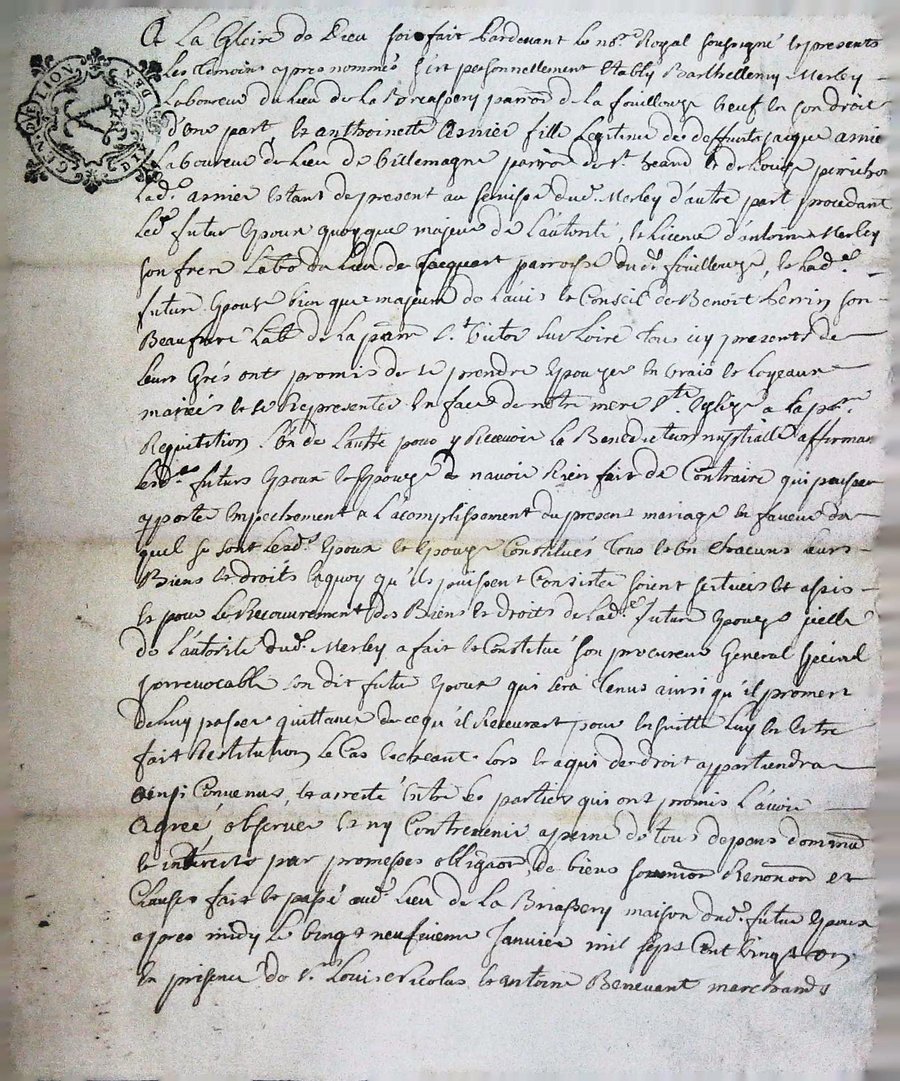 GEN. DE LION DEN
A La Gloire de Dieu soit fait Pardevant Le no.re Royal Soussigné et presents
Les temoins apres nommés fut personnellement Etably Barthellemy Merley
Laboureur du Lieu de La parr.on de La fouillouze veuf en son droit
d'Une part et anthoinette Armier fille Legitime de deffunts Jacque armier
Laboureur du Lieu de Villemagne parr.on de St heand et de
Lad.e armier Estant de present au servisse dud. Merley d'autre part procedant
Led. futur Epoux quoy que majeur de L'autorité, et Licence d'antoine Merley
son frere Labo. du Lieu de Jacquart parroisse dud. fouillouze, et Lad.e
future Epouze bien que majeure de L'avis et Conseil de Benoit perrin son
Beaufrere Lab.r de La parr. St. Victor Sur Loire tous icy presents de
Leurs Grés ont promis de se prendre Epouzer en vrais et Loyeaux
mariés et se Representer En face de notre mere S.te Eglize a La p.re
Requisition L'un de Lautre pour y Recevoir La Benediction nuptialle affirmant
Lesd.s futurs Epoux et Epouze de navoir Rien fait de Contraire qui puisse
apporter Empechement a L'acomplissement du present mariage en faveur du
quel se sont Lesd.s Epoux et Epouze Constitués tous et un chacuns Leurs
Biens et droits en quoy qu'ils puissent Consister soient scitués et assis
et pour Le Recouvrement des Biens et droits de Lad.e future Epouze icelle
de L'autorité dud. Merley a fait et Constitué son procureur General special
Irrevocable son dit futur Epoux qui sera tenus ainsi qu'il promet
de Luy passer quittance de ce qu'il Recevrat pour Ensuitte Luy en Estre
fait Restitution Le Cas Echeant Lors et a qui de droit appartiendra
ainsi Convenus, et arresté Entre Les parties qui ont promis L'avoir
Agreé observer et ny Contrevenir a peine de tous depens dommé
et interests par promesses obligaon, de biens soumon Renonon et
Clauses fait et passé aud. Lieu de La Briassery maison dud. futur Epoux
apres midy Le vingt neufvieme Janvier mil sept Cent vingt
En presence de S.rs Louis Nicolas et antoine Benevant marchands